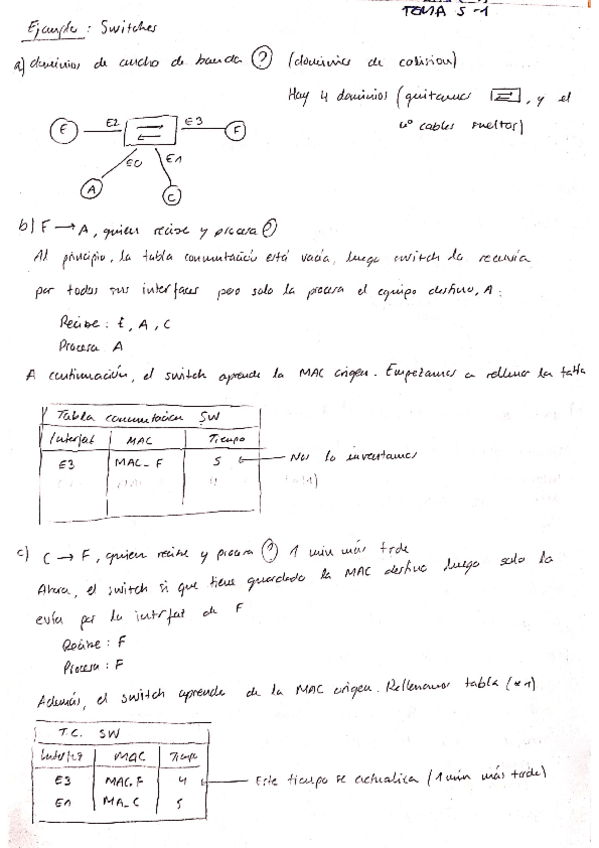 TEMA 5-1
Ejemplo: Switches
a) dominios de ancho de banda ? (dominios de colision)
Hay 4 dominios (quitamos , y el
nº cables sueltos)
E E2 E3 F
E0 E1
A C
b) F → A, quien recibe y procesa ?
Al principio, la tabla conmutació está vacía, luego switch la reenvía
por todas sus interfaces pero solo la procesa el equipo destino, A:
Recibe: E, A, C
Procesa A
A continuación, el switch aprende la MAC origen. Empezamos a rellenar la tabla
Tabla conmutacion SW
Interfaz MAC Tiempo
E3 MAC_F 5 ← Nos lo inventamos
c) C → F, quien recibe y procesa ? 1 min más tarde
Ahora, el switch si que tiene guardado la MAC destino luego solo la
evía por la intrfaz de F
Recibe: F
Procesa: F
Además, el switch aprende de la MAC origen. Rellenamos tabla (e1)
T.C. SW
Interfaz MAC Tiempo
E3 MAC_F 4 ← Este tiempo se actualiza (1 min más tarde)
E1 MA_C 5